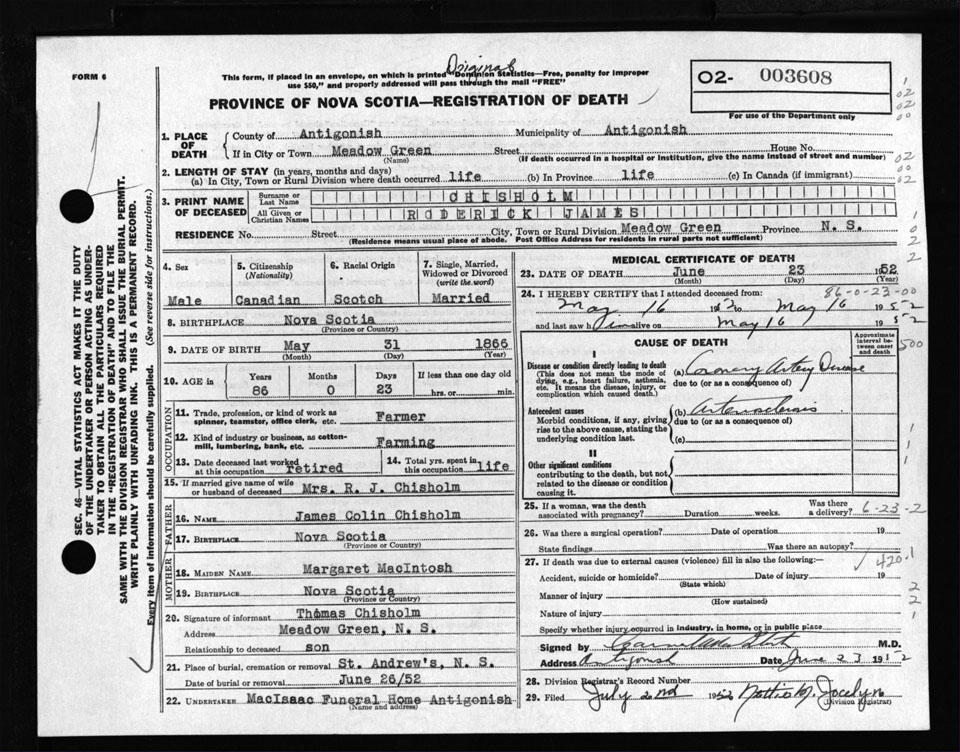 FORM 6
Original
This form, if placed in an envelope, on which is printed "Dominion Statistics—Free, penalty for improper
use $50," and properly addressed will pass through the mail "FREE"
PROVINCE OF NOVA SCOTIA—REGISTRATION OF DEATH
02- 003608
For use of the Department only
1. PLACE OF DEATH
County of Antigonish Municipality of Antigonish
If in City or Town Meadow Green Street House No.
(Name) (If death occurred in a hospital or institution, give the name instead of street and number)
2. LENGTH OF STAY (in years, months and days)
(a) In City, Town or Rural Division where death occurred life (b) In Province life (c) In Canada (if immigrant)
3. PRINT NAME OF DECEASED
Surname or Last Name CHISHOLM
All Given or Christian Names RODERICK JAMES
RESIDENCE No. Street City, Town or Rural Division Meadow Green Province N. S.
(Residence means usual place of abode. Post Office Address for residents in rural parts not sufficient)
4. Sex Male
5. Citizenship (Nationality) Canadian
6. Racial Origin Scotch
7. Single, Married, Widowed or Divorced (write the word) Married
8. BIRTHPLACE Nova Scotia
(Province or Country)
9. DATE OF BIRTH May 31 1866
(Month) (Day) (Year)
10. AGE in Years Months Days If less than one day old
86 0 23 hrs. or min.
OCCUPATION
11. Trade, profession, or kind of work as
spinner, teamster, office clerk, etc. Farmer
12. Kind of industry or business, as cotton-
mill, lumbering, bank, etc. Farming
13. Date deceased last worked
at this occupation retired
14. Total yrs. spent in
this occupation life
15. If married give name of wife
or husband of deceased Mrs. R. J. Chisholm
FATHER
16. NAME James Colin Chisholm
17. BIRTHPLACE Nova Scotia
(Province or Country)
MOTHER
18. MAIDEN NAME Margaret MacIntosh
19. BIRTHPLACE Nova Scotia
(Province or Country)
20. Signature of informant Thomas Chisholm
Address Meadow Green, N. S.
Relationship to deceased son
21. Place of burial, cremation or removal St. Andrew's, N. S.
Date of burial or removal June 26/52
22. UNDERTAKER MacIsaac Funeral Home Antigonish
(Name and address)
MEDICAL CERTIFICATE OF DEATH
23. DATE OF DEATH June 23 1952
(Month) (Day) (Year)
86-0-23-00
24. I HEREBY CERTIFY that I attended deceased from:
May 16 1952 to May 16 1952
and last saw him alive on May 16 1952
CAUSE OF DEATH
Approximate interval between onset and death
I
Disease or condition directly leading to death
(This does not mean the mode of
dying, e.g., heart failure, asthenia,
etc. It means the disease, injury, or
complication which caused death.)
(a) Coronary Artery Disease
due to (or as a consequence of)
Antecedent causes
Morbid conditions, if any, giving
rise to the above cause, stating the
underlying condition last.
(b) Arteriosclerosis
due to (or as a consequence of)
(c)
II
Other significant conditions
contributing to the death, but not
related to the disease or condition
causing it.
25. If a woman, was the death
associated with pregnancy? Duration weeks. Was there
a delivery? 6-23-2
26. Was there a surgical operation? Date of operation 19
State findings Was there an autopsy?
27. If death was due to external causes (violence) fill in also the following:—
420.1
Accident, suicide or homicide? Date of injury 19
(State which)
Manner of injury
(How sustained)
Nature of injury
Specify whether injury occurred in industry, in home, or in public place
Signed by M.D.
Address Antigonish Date June 23 1952
28. Division Registrar's Record Number
29. Filed July 2nd 1952 Jocelyn
(Division Registrar)
SEC. 46—VITAL STATISTICS ACT MAKES IT THE DUTY
OF THE UNDERTAKER OR PERSON ACTING AS UNDER-
TAKER TO OBTAIN ALL THE PARTICULARS REQUIRED
IN THE "REGISTRATION OF DEATH" AND TO FILE THE
SAME WITH THE DIVISION REGISTRAR WHO SHALL ISSUE THE BURIAL PERMIT.
WRITE PLAINLY WITH UNFADING INK. THIS IS A PERMANENT RECORD.
Every item of information should be carefully supplied. (See reverse side for instructions.)